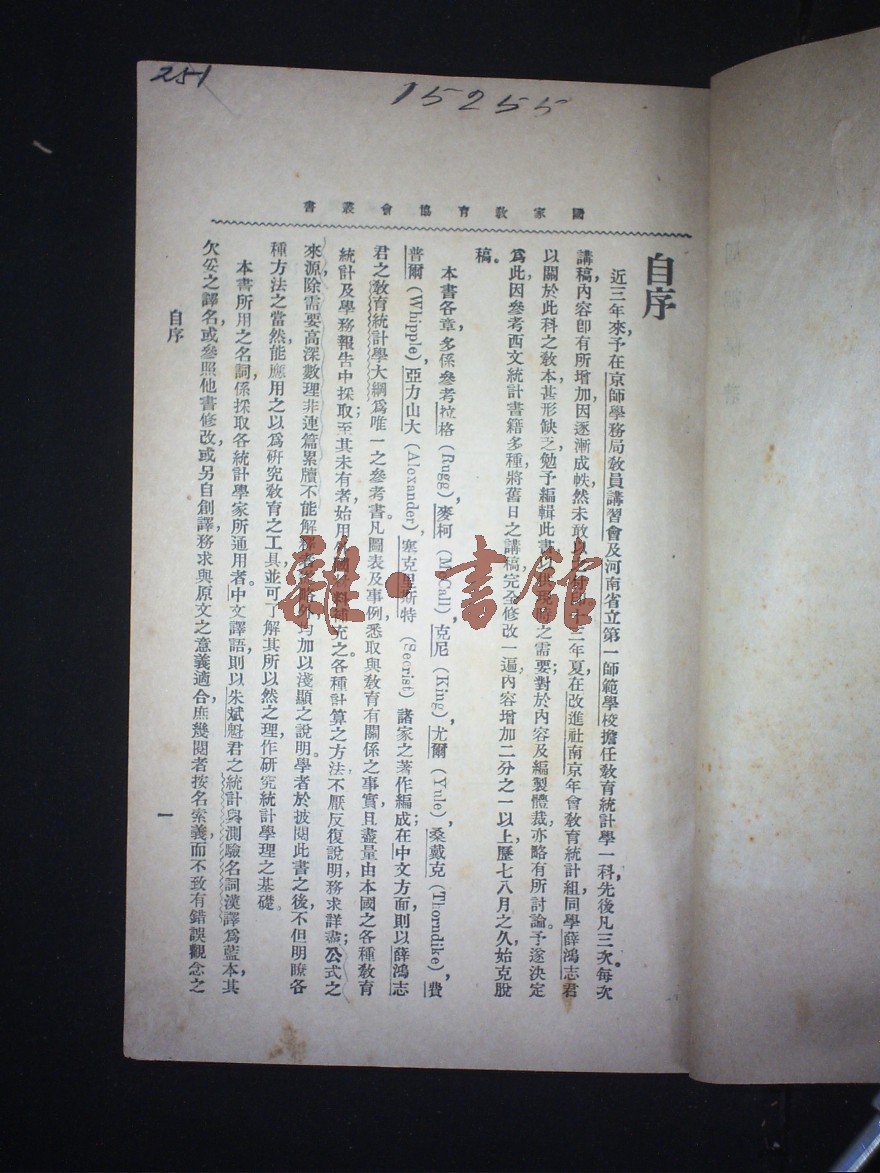 251
15255
國家教育協會叢書
自序
近三年來，予在京師學務局教員講習會及河南省立第一師範學校擔任教育統計學一科，先後凡三次。每次
講稿內容卽有所增加，因逐漸成帙，然未敢以之付印。十三年夏，在改進社南京年會教育統計組，同學薛鴻志君
以關於此科之教本，甚形缺乏，勉予編輯此書，以之需要；對於內容及編製體裁，亦略有所討論。予遂決定
爲此，因參考西文統計書籍多種，將舊日之講稿，完全修改一遍，內容增加二分之一以上，歷七八月之久，始克脫
稿。
本書各章，多係參考拉格(Rugg)，麥柯(McCall)，克尼(King)，尤爾(Yule)，桑戴克(Thorndike)，費
普爾(Whipple)，亞力山大(Alexander)，塞克里斯特(Secrist)諸家之著作編成；在中文方面，則以薛鴻志
君之教育統計學大綱爲唯一之參考書。凡圖表及事例，悉取與教育有關係之事實，且盡量由本國之各種教育
統計及學務報告中採取；至其未有者，始用外國材料補充之。各種計算之方法，不厭反復說明，務求詳盡；公式之
來源，除需要高深數理非連篇累牘不能解釋者略外，均加以淺顯之說明。學者於披閱此書之後，不但明瞭各
種方法之當然，能應用之以爲研究教育之工具，並可了解其所以然之理，作研究統計學理之基礎。
本書所用之名詞，係採取各統計學家所通用者。中文譯語，則以朱斌魁君之統計與測驗名詞漢譯爲藍本，其
欠妥之譯名，或參照他書修改，或另自創譯，務求與原文之意義適合，庶幾閱者按名索義，而不致有錯誤觀念之
自序
一
雜·書館